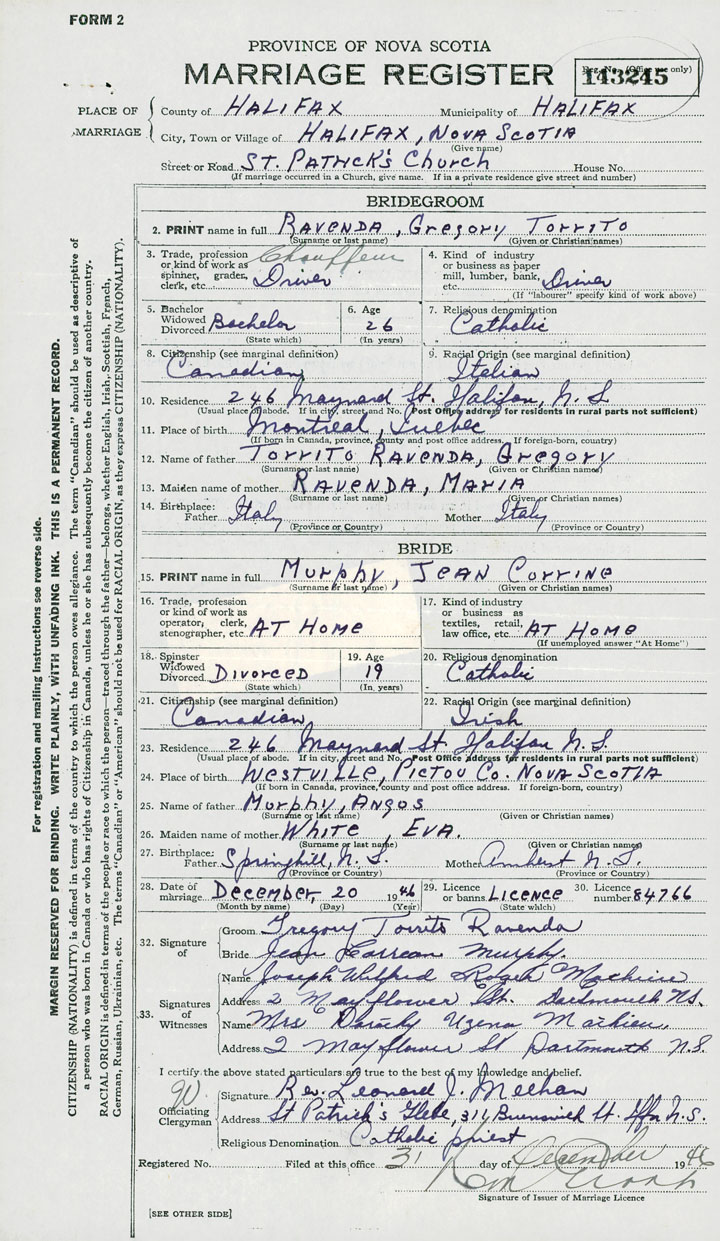 FORM 2
PROVINCE OF NOVA SCOTIA
MARRIAGE REGISTER
Reg. No. (Office use only)
143245
PLACE OF MARRIAGE
County of HALIFAX Municipality of HALIFAX
City, Town or Village of HALIFAX, NOVA SCOTIA
(Give name)
Street or Road ST. PATRICK'S CHURCH House No.
(If marriage occurred in a Church, give name. If in a private residence give street and number)
BRIDEGROOM
2. PRINT name in full RAVENDA, Gregory TORRITO
(Surname or last name) (Given or Christian names)
3. Trade, profession or kind of work as spinner, grader, clerk, etc. Chauffeur Driver
4. Kind of industry or business as paper mill, lumber, bank, etc. Driver
(If "labourer" specify kind of work above)
5. Bachelor Widowed Divorced Bachelor
(State which)
6. Age 26
(In years)
7. Religious denomination Catholic
8. Citizenship (see marginal definition) Canadian
9. Racial Origin (see marginal definition) Italian
10. Residence 246 Maynard St. Halifax, N.S.
(Usual place of abode. If in city, street and No. Post Office address for residents in rural parts not sufficient)
11. Place of birth Montreal, Quebec
(If born in Canada, province, county and post office address. If foreign-born, country)
12. Name of father TORRITO RAVENDA, Gregory
(Surname or last name) (Given or Christian names)
13. Maiden name of mother RAVENDA, MARIA
(Surname or last name) (Given or Christian names)
14. Birthplace: Father Italy Mother Italy
(Province or Country) (Province or Country)
BRIDE
15. PRINT name in full Murphy, JEAN CORRINE
(Surname or last name) (Given or Christian names)
16. Trade, profession or kind of work as operator, clerk, stenographer, etc. AT HOME
17. Kind of industry or business as textiles, retail, law office, etc. AT HOME
(If unemployed answer "At Home")
18. Spinster Widowed Divorced DIVORCED
(State which)
19. Age 19
(In years)
20. Religious denomination Catholic
21. Citizenship (see marginal definition) Canadian
22. Racial Origin (see marginal definition) Irish
23. Residence 246 Maynard St Halifax N.S.
(Usual place of abode. If in city, street and No. Post Office address for residents in rural parts not sufficient)
24. Place of birth WESTVILLE, PICTOU CO. NOVA SCOTIA
(If born in Canada, province, county and post office address. If foreign-born, country)
25. Name of father Murphy, ANGOS
(Surname or last name) (Given or Christian names)
26. Maiden name of mother White, EVA.
(Surname or last name) (Given or Christian names)
27. Birthplace: Father Springhill, N.S. Mother Amherst N.S.
(Province or Country) (Province or Country)
28. Date of marriage December, 20 1946
(Month by name) (Day) (Year)
29. Licence or banns LICENCE
(State which)
30. Licence number 84766
32. Signature of
Groom Gregory Torrito Ravenda
Bride Jean Correan Murphy.
33. Signatures of Witnesses
Name Joseph Wilfred
Address 2 Mayflower St. Dartmouth N.S.
Name Mrs Dorothy Mathieu,
Address 2 Mayflower St Dartmouth N.S.
I certify the above stated particulars are true to the best of my knowledge and belief.
Officiating Clergyman
Signature Rev. Leonard J. Meehan
Address St Patrick's Glebe, 311, Brunswick St. Hfx N.S.
Religious Denomination Catholic priest
Registered No. Filed at this office 31 day of December 1946
Signature of Issuer of Marriage Licence
[SEE OTHER SIDE]
For registration and mailing instructions see reverse side.
MARGIN RESERVED FOR BINDING. WRITE PLAINLY, WITH UNFADING INK. THIS IS A PERMANENT RECORD.
CITIZENSHIP (NATIONALITY) is defined in terms of the country to which the person owes allegiance. The term "Canadian" should be used as descriptive of
a person who was born in Canada or who has rights of Citizenship in Canada, unless he or she has subsequently become the citizen of another country.
RACIAL ORIGIN is defined in terms of the people or race to which the person—traced through the father—belongs, whether English, Irish, Scottish, French,
German, Russian, Ukrainian, etc. The terms "Canadian" or "American" should not be used for RACIAL ORIGIN, as they express CITIZENSHIP (NATIONALITY).